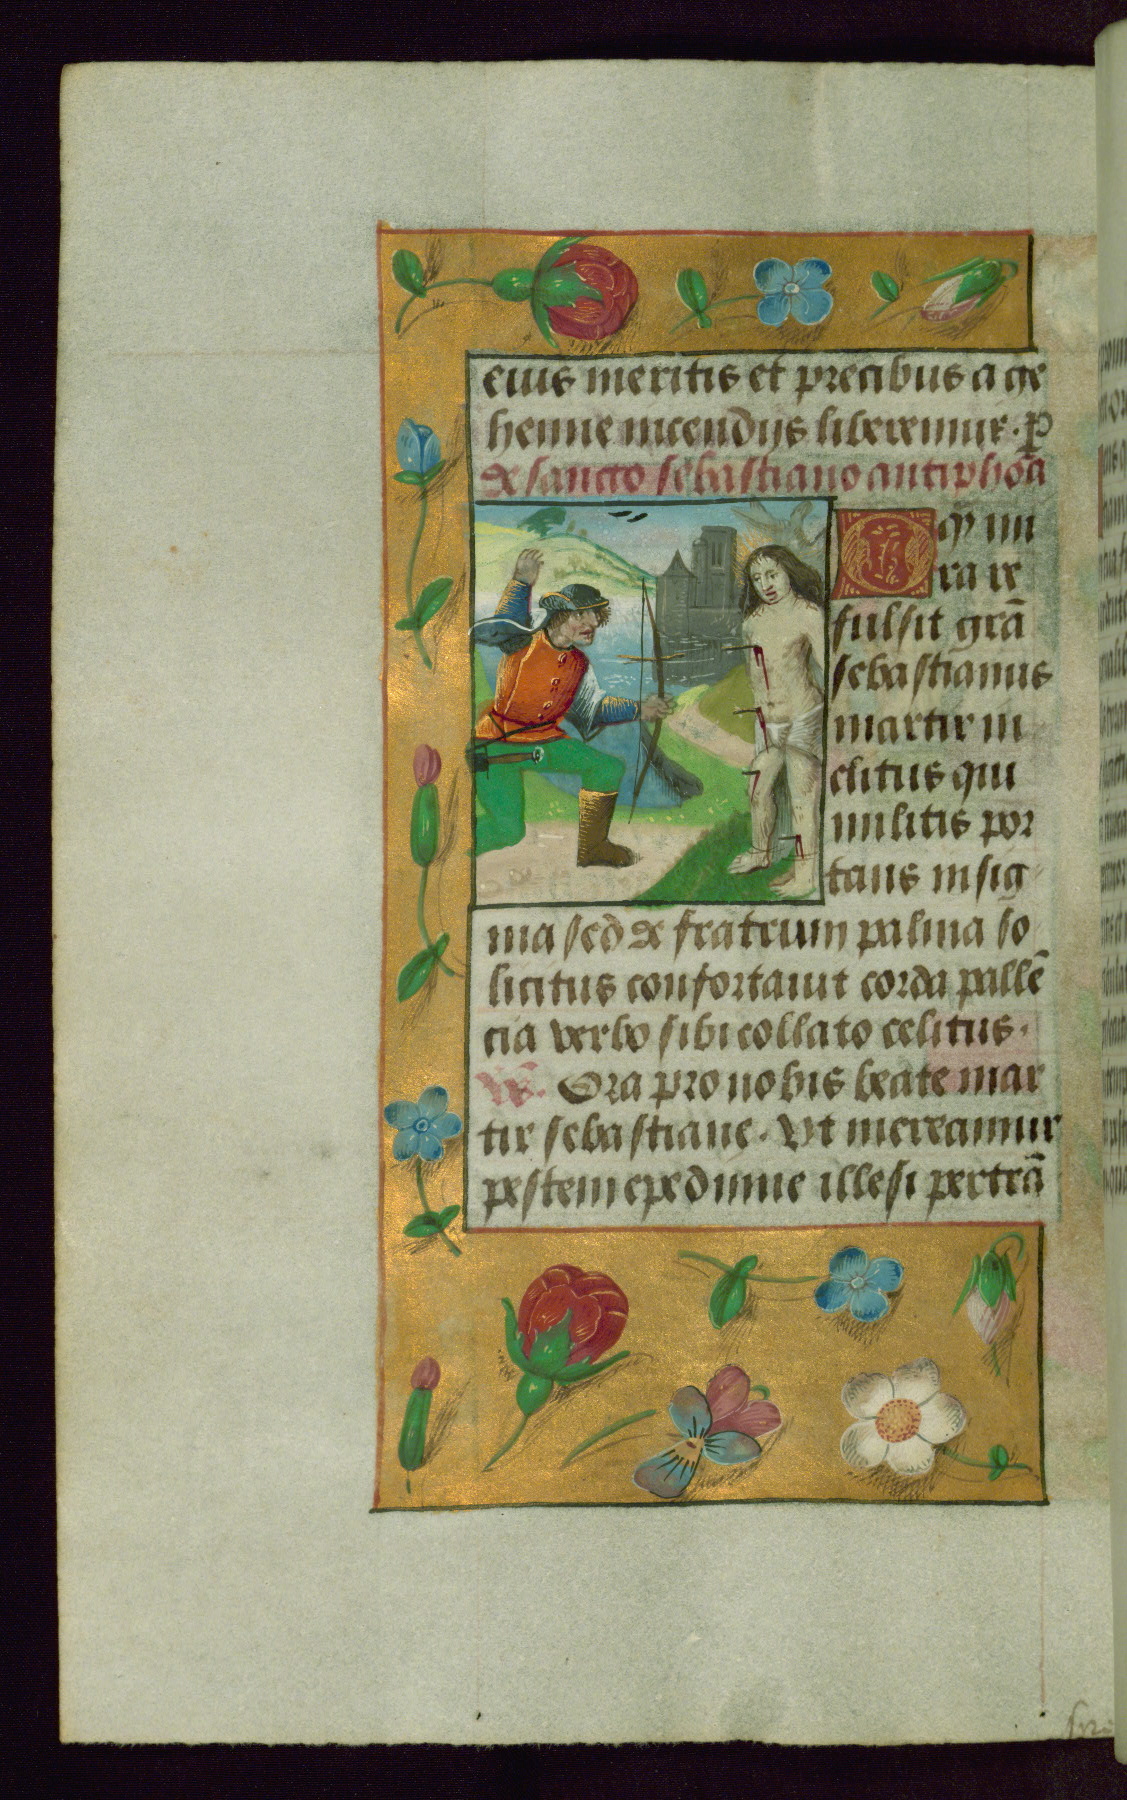 eius meritis et precibus a ge
henne incendijs liberemur. P
de sancto sebastiano antiphoā
O qm̄ mi
ra re
fulsit grā
sebastianus
martir in
clitus qui
militis por
tans insig
nia sed de fratrum palma so
licitus confortauit corda pallē
cia verbo sibi collato celitus.
Vs. Ora pro nobis beate mar
tir sebastiane. Vt mereamur
pestem epedimie illesi pertrā